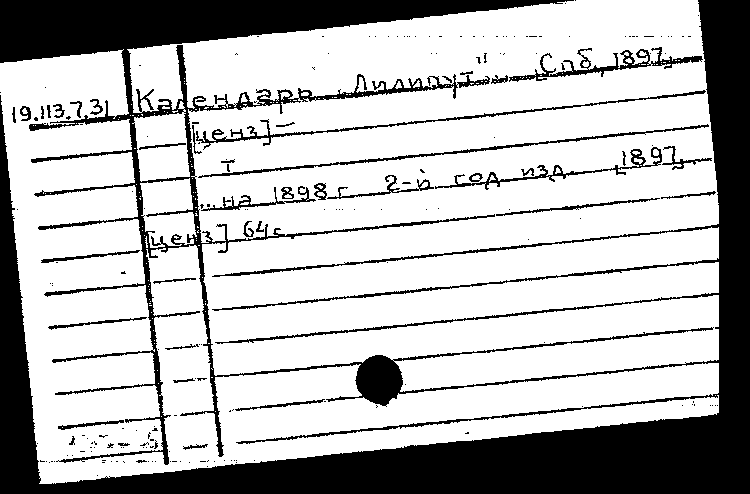 19.113.7.31 Календарь „Лилипут". Спб, [1897]
[ценз] —
Т
... на 1898 г 2-й год изд. [1897]
[ценз] 64 с.